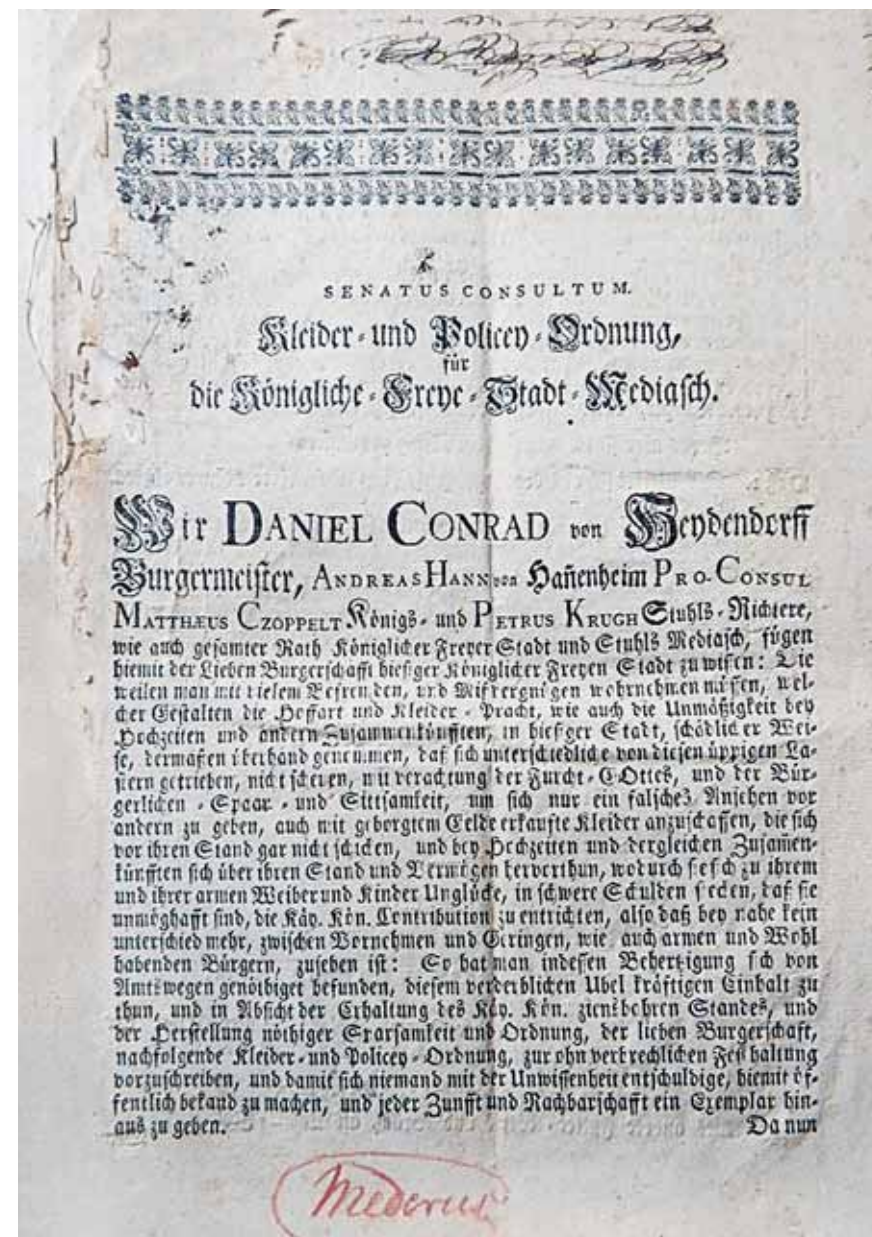 SENATUS CONSULTUM.
Kleider- und Policey-Ordnung,
für
die Königliche-Freye-Stadt-Mediasch.
Wir DANIEL CONRAD von Heydendorff
Burgermeister, ANDREAS HANN von Hañenheim PRO-CONSUL
MATTHÆUS CZOPPELT Königs- und PETRUS KRUGH Stuhls-Richtere,
wie auch gesamter Rath Königlicher Freyer Stadt und Stuhls Mediasch, fügen
hiemit der Lieben Burgerschafft hiesiger Königlicher Freyen Stadt zu wißen: Die
weilen man mit vielem Befremden, und Mißvergnügen wahrnehmen müßen, wel-
cher Gestalten die Hoffart und Kleider-Pracht, wie auch die Unmäßigkeit bey
Hochzeiten und andern Zusammenkünfften, in hiesiger Stadt, schädlicher Wei-
se, dermaßen überhand genommen, daß sich unterschiedliche von diesen üppigen La-
stern getrieben, nicht scheuen, mit verachtung der Furcht-GOttes, und der Bür-
gerlichen-Spaar- und Sittsamkeit, um sich nur ein falsches Ansehen vor
andern zu geben, auch mit geborgtem Gelde erkaufte Kleider anzuschaffen, die sich
vor ihren Stand gar nicht schicken, und bey Hochzeiten und dergleichen Zusam̃en-
künfften sich über ihren Stand und Vermögen hervorthun, wodurch sie sich zu ihrem
und ihrer armen Weiber und Kinder Unglücke, in schwere Schulden, daß sie
unmöghafft sind, die Käy. Kön. Contribution zu entrichten, also daß bey nahe kein
unterschied mehr, zwischen Vornehmen und Geringen, wie auch armen und Wohl
habenden Bürgern, zusehen ist: So hat man indeßen Behertzigung sich von
Amtswegen genöthiget befunden, diesem verderblichen Ubel kräftigen Einhalt zu
thun, und in Absicht der Erhaltung des Käy. Kön. Standes, und
der Herstellung nöthiger Sparsamkeit und Ordnung, der lieben Burgerschaft,
nachfolgende Kleider-und Policey-Ordnung, zur ohn verbrechlichen Festhaltung
vorzuschreiben, und damit sich niemand mit der Unwissenheit entschuldige, hiemit öf-
fentlich bekand zu machen, und jeder Zunfft und Nachbarschafft ein Exemplar hin-
aus zu geben. Da nun
Mederus